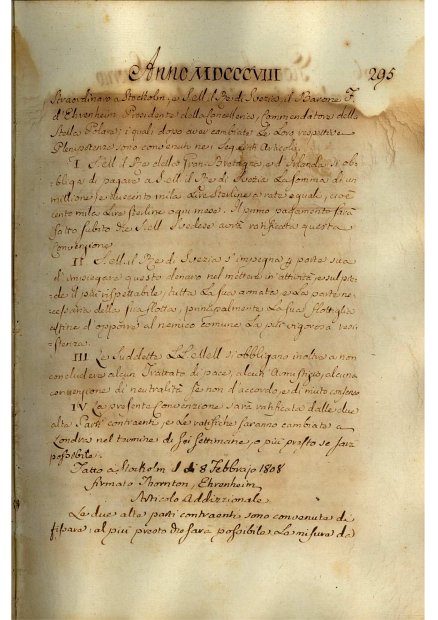 Anno MDCCCVIII 295
Straordinario a Stockolm, e Sell. il Re di Svezia il Barone F.
d'Ehrenheim Presidente della Cancelleria, Commendatore della
Stella Polare; i quali dopo aver cambiate le loro rispettive
Plenipotenze sono convenuti nei seguenti Articoli.
I. Sell. il Re della Gran-Bretagna, ed Irlanda si ob-
bliga di pagare a Sell. il Re di Svezia la somma di un
millione, e duecento mila Lire Sterline a rate eguali, cioè
cento mila Lire Sterline ogni mese. Il primo pagamento sarà
fatto subito che Sell. Svedese avrà ratificata questa
Convenzione.
II. Sell. il Re di Svezia s'impegna per parte sua
d'impiegare questo denaro nel mettere in attività, e sul pie-
de il più rispettabile, tutta la sua armata e la parte ne-
cessaria della sua flotta, principalmente la sua flottiglia
affine d'opporre al nemico comune la più vigorosa resi-
stenza.
III. Le suddette LL. MM. si obbligano inoltre a non
concludere alcun Trattato di pace, alcun Armistizio, alcuna
convenzione di neutralità se non d'accordo, e di mutuo consenso
IV. La presente Convenzione sarà ratificata dalle due
alte Parti contraenti, e le ratifiche saranno cambiate a
Londra nel termine di Sei Settimane, o più presto se sarà
possibile.
Fatto a Stockolm il dì 8 Febbrajo 1808
firmato Thornton, Ehrenheim
Articolo Addizzionale.
Le due alte parti contraenti sono convenute di
fissare al più presto che sarà possibile le misure da